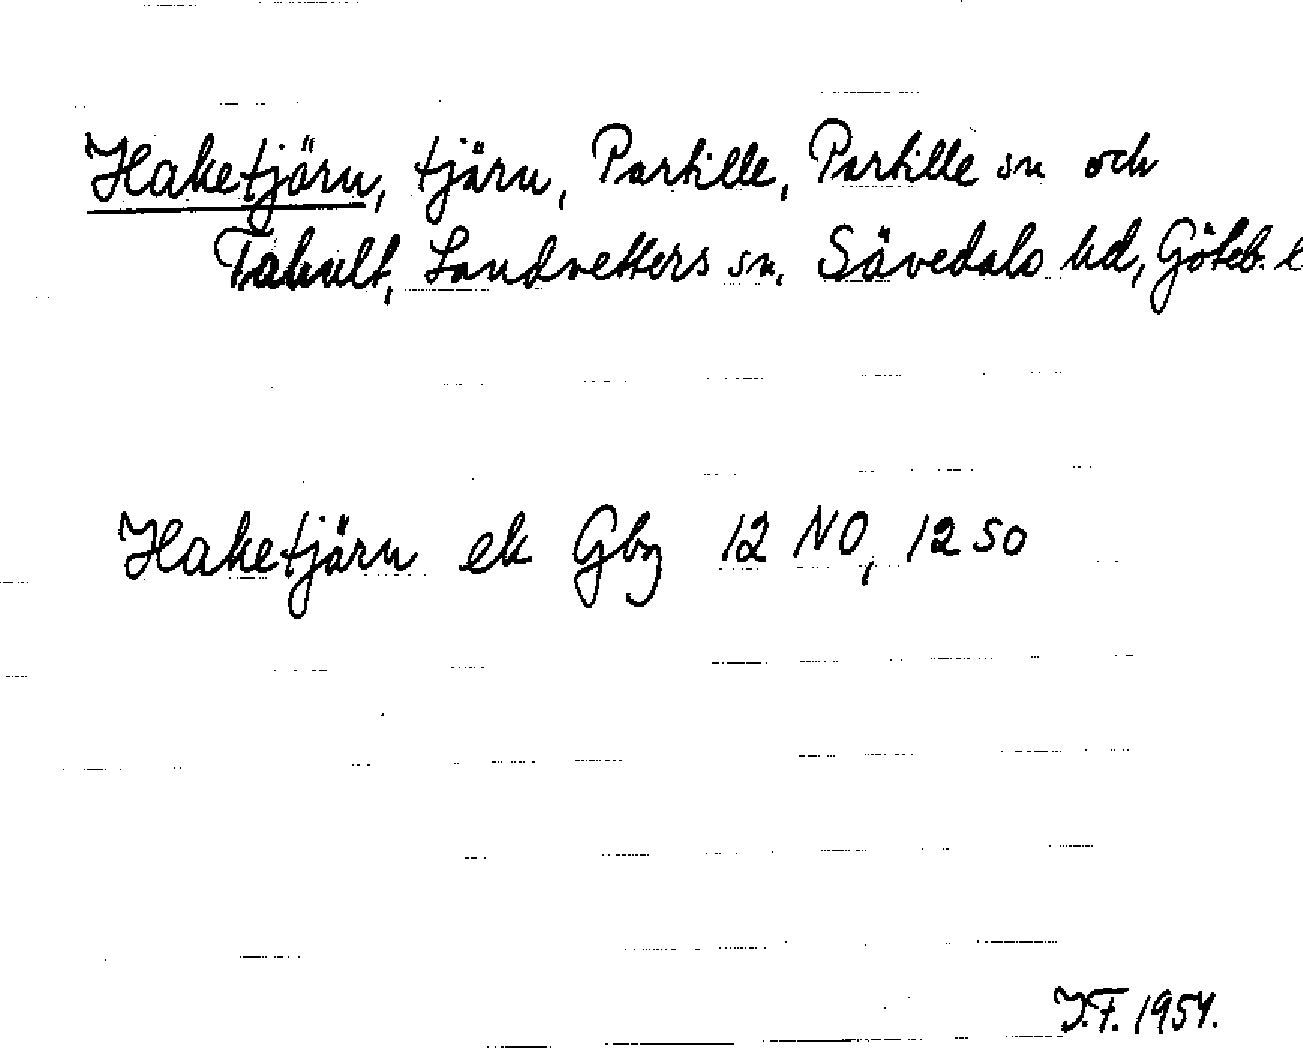 Haketjärn, tjärn, Partille, Partille sn och
Tahult, Landvetters sn, Sävedals hd, Göteb. l
Haketjärn ek Gbg 12 NO, 12 SO
J.F. 1954.